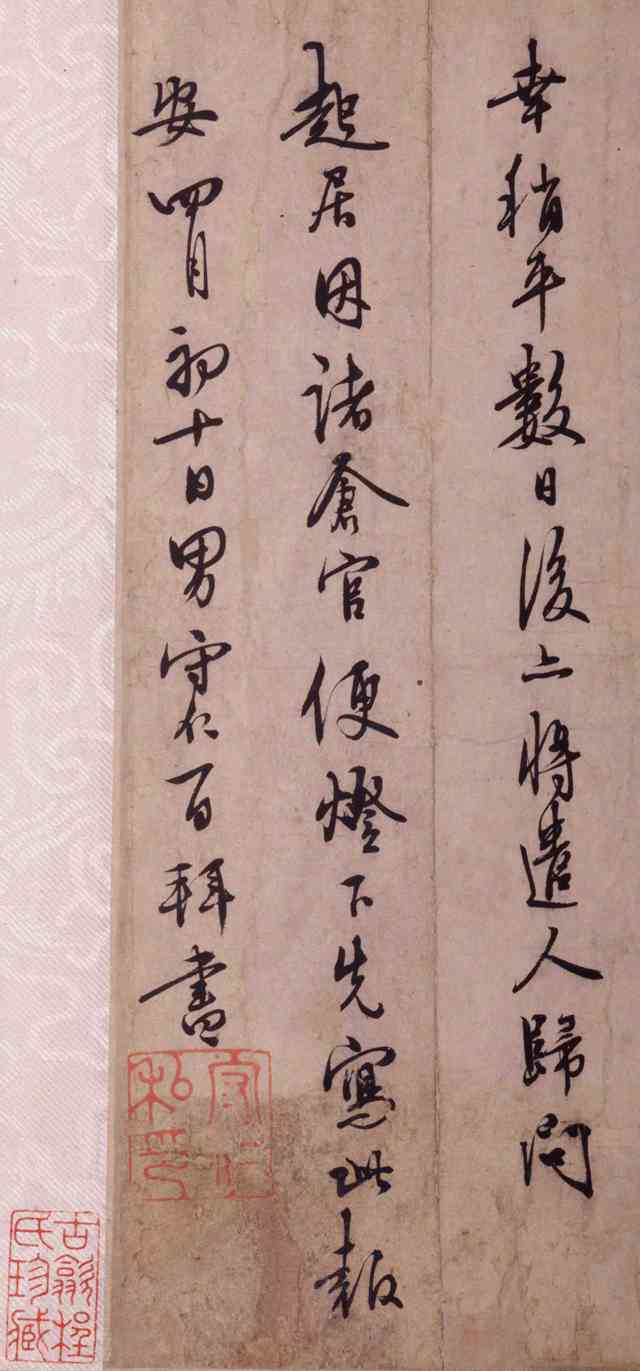 幸稍平數日後亦將遣人歸問
起居因諸倉官便燈下先寫此報
安四月初十日男守仁百拜書
守仁私印
古歙程氏珍藏